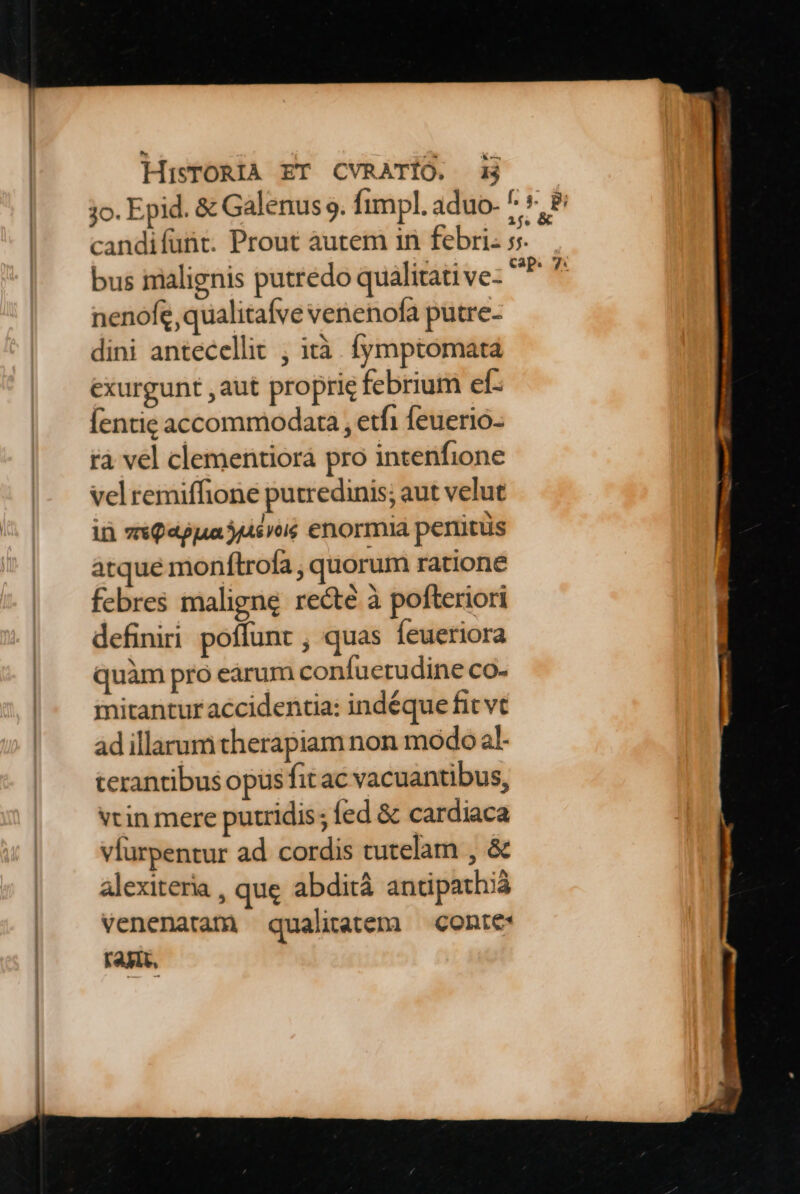 HISTORIA ET CVRATIO. 13
30. Epid. & Galenus 9. ſimpl. aduo-
candi ſunt. Prout autem in febri-
bus malignis putredo qualitati ve-
nenoſę, qualitaſve venenoſa putre-
dini antecellit , ità ſymptomata
exurgunt , aut proprię febrium eſ-
ſentię accommodata , etſi ſeuerio-
ra vel clementiora pro intenſione
vel remiſſione putredinis; aut velut
in πεφαρμαγμένοις enormia penitùs
atque monſtroſa , quorum ratione
febres malignę rectè à poſteriori
definiri poſſunt , quas ſeueriora
quàm pro earum conſuetudine co-
mitantur accidentia: indéque fit vt
ad illarum therapiam non modo al-
terantibus opus ſit ac vacuantibus,
vt in mere putridis; ſed & cardiaca
vſurpentur ad cordis tutelam , &
alexiteria , quę abditâ antipathiâ
venenatam qualitatem conte-
rant,
55. &
55.
cap. 7.